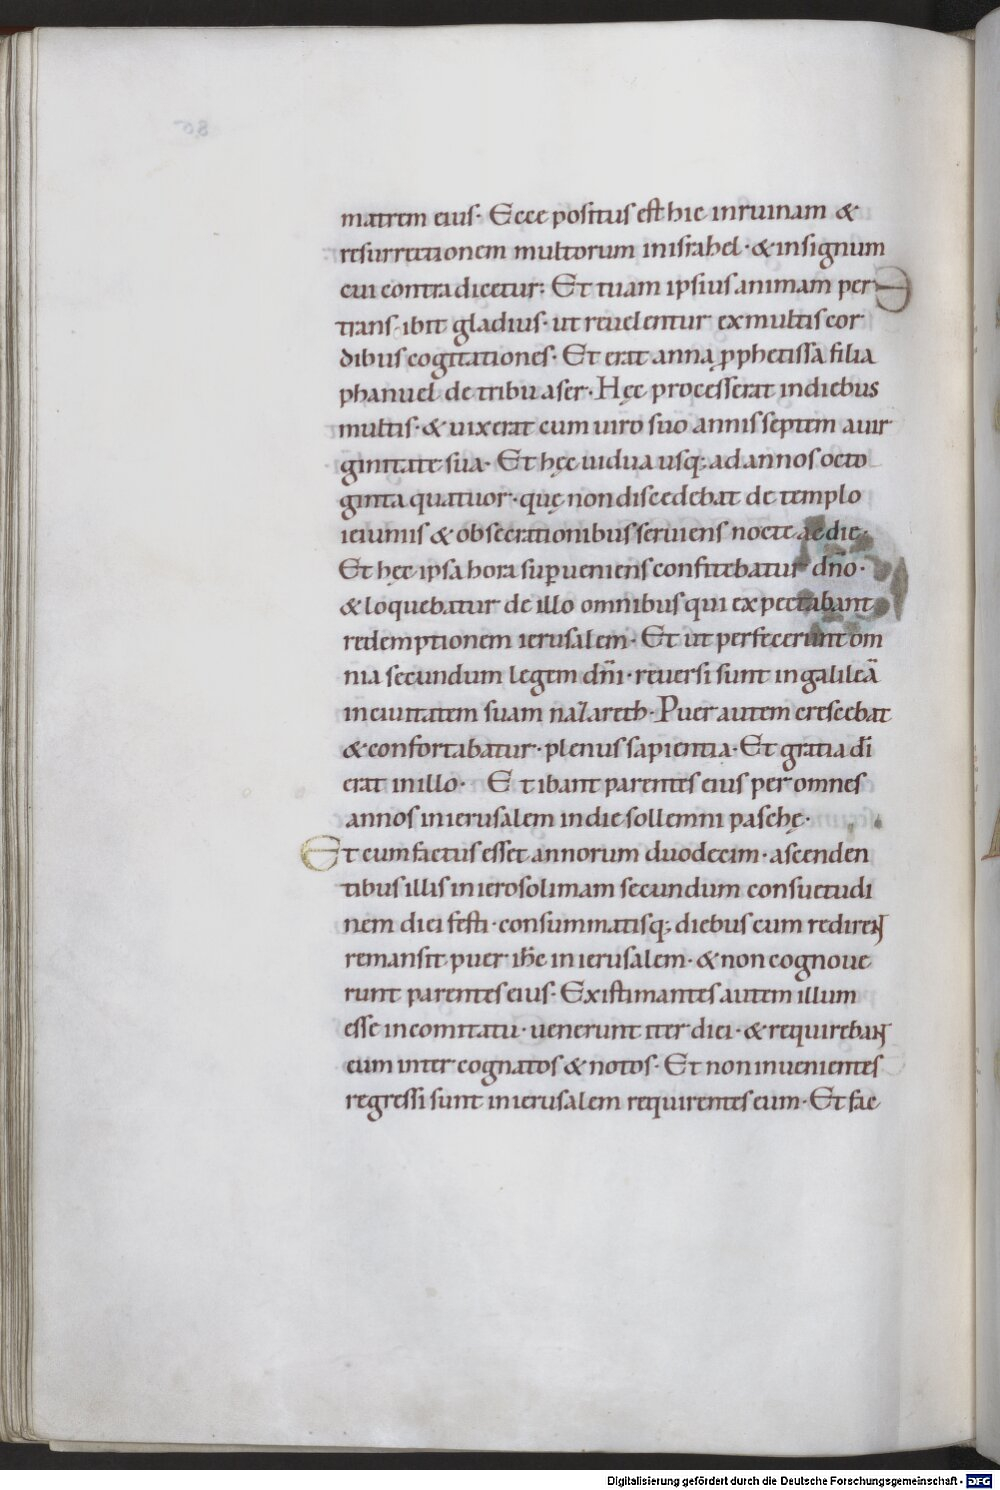 matrem eius· Ecce positus est hic inruinam &
resurrectionem multorum inisrahel· & insignum
cui contradicetur· Et tuam ipsius animam per
trans ibit gladius· ut reuelentur exmultis cor
dibus cogitationes· Et erat anna pphetissa filia
phanuel de tribu aser· Hęc processerat indiebus
multis· & uixerat cum uiro suo annis septem auir
ginitate sua· Et hęc uidua usq; ad annos octo
ginta quatuor· quę non discedebat de templo
ieiuniis & obsecrationibus seruiens nocte ac die·
Et hęc ipsa hora superueniens confitebatur dño·
& loquebatur de illo omnibus qui expectabant
redemptionem ierusalem· Et ut perfecerunt om
nia secundum legem dñi· reuersi sunt ingalileā
inciuitatem suam nazareth· Puer autem crescebat
& confortabatur· plenus sapientia· Et gratia dī
erat inillo· Et ibant parentes eius per omnes
annos inierusalem indie sollemni paschę·
Et cum factus esset annorum duodecim· ascenden
tibus illis inierosolimam secundum consuetudi
nem diei festi· consummatisq; diebus cum redirent
remansit puer ihc inierusalem· & non cognoue
runt parentes eius· Existimantes autem illum
esse incomitatu· uenerunt iter diei· & requirebant
eum inter cognatos & notos· Et non inuenientes
regressi sunt inierusalem requirentes eum· Et fac
Digitalisierung gefördert durch die Deutsche Forschungsgemeinschaft - DFG